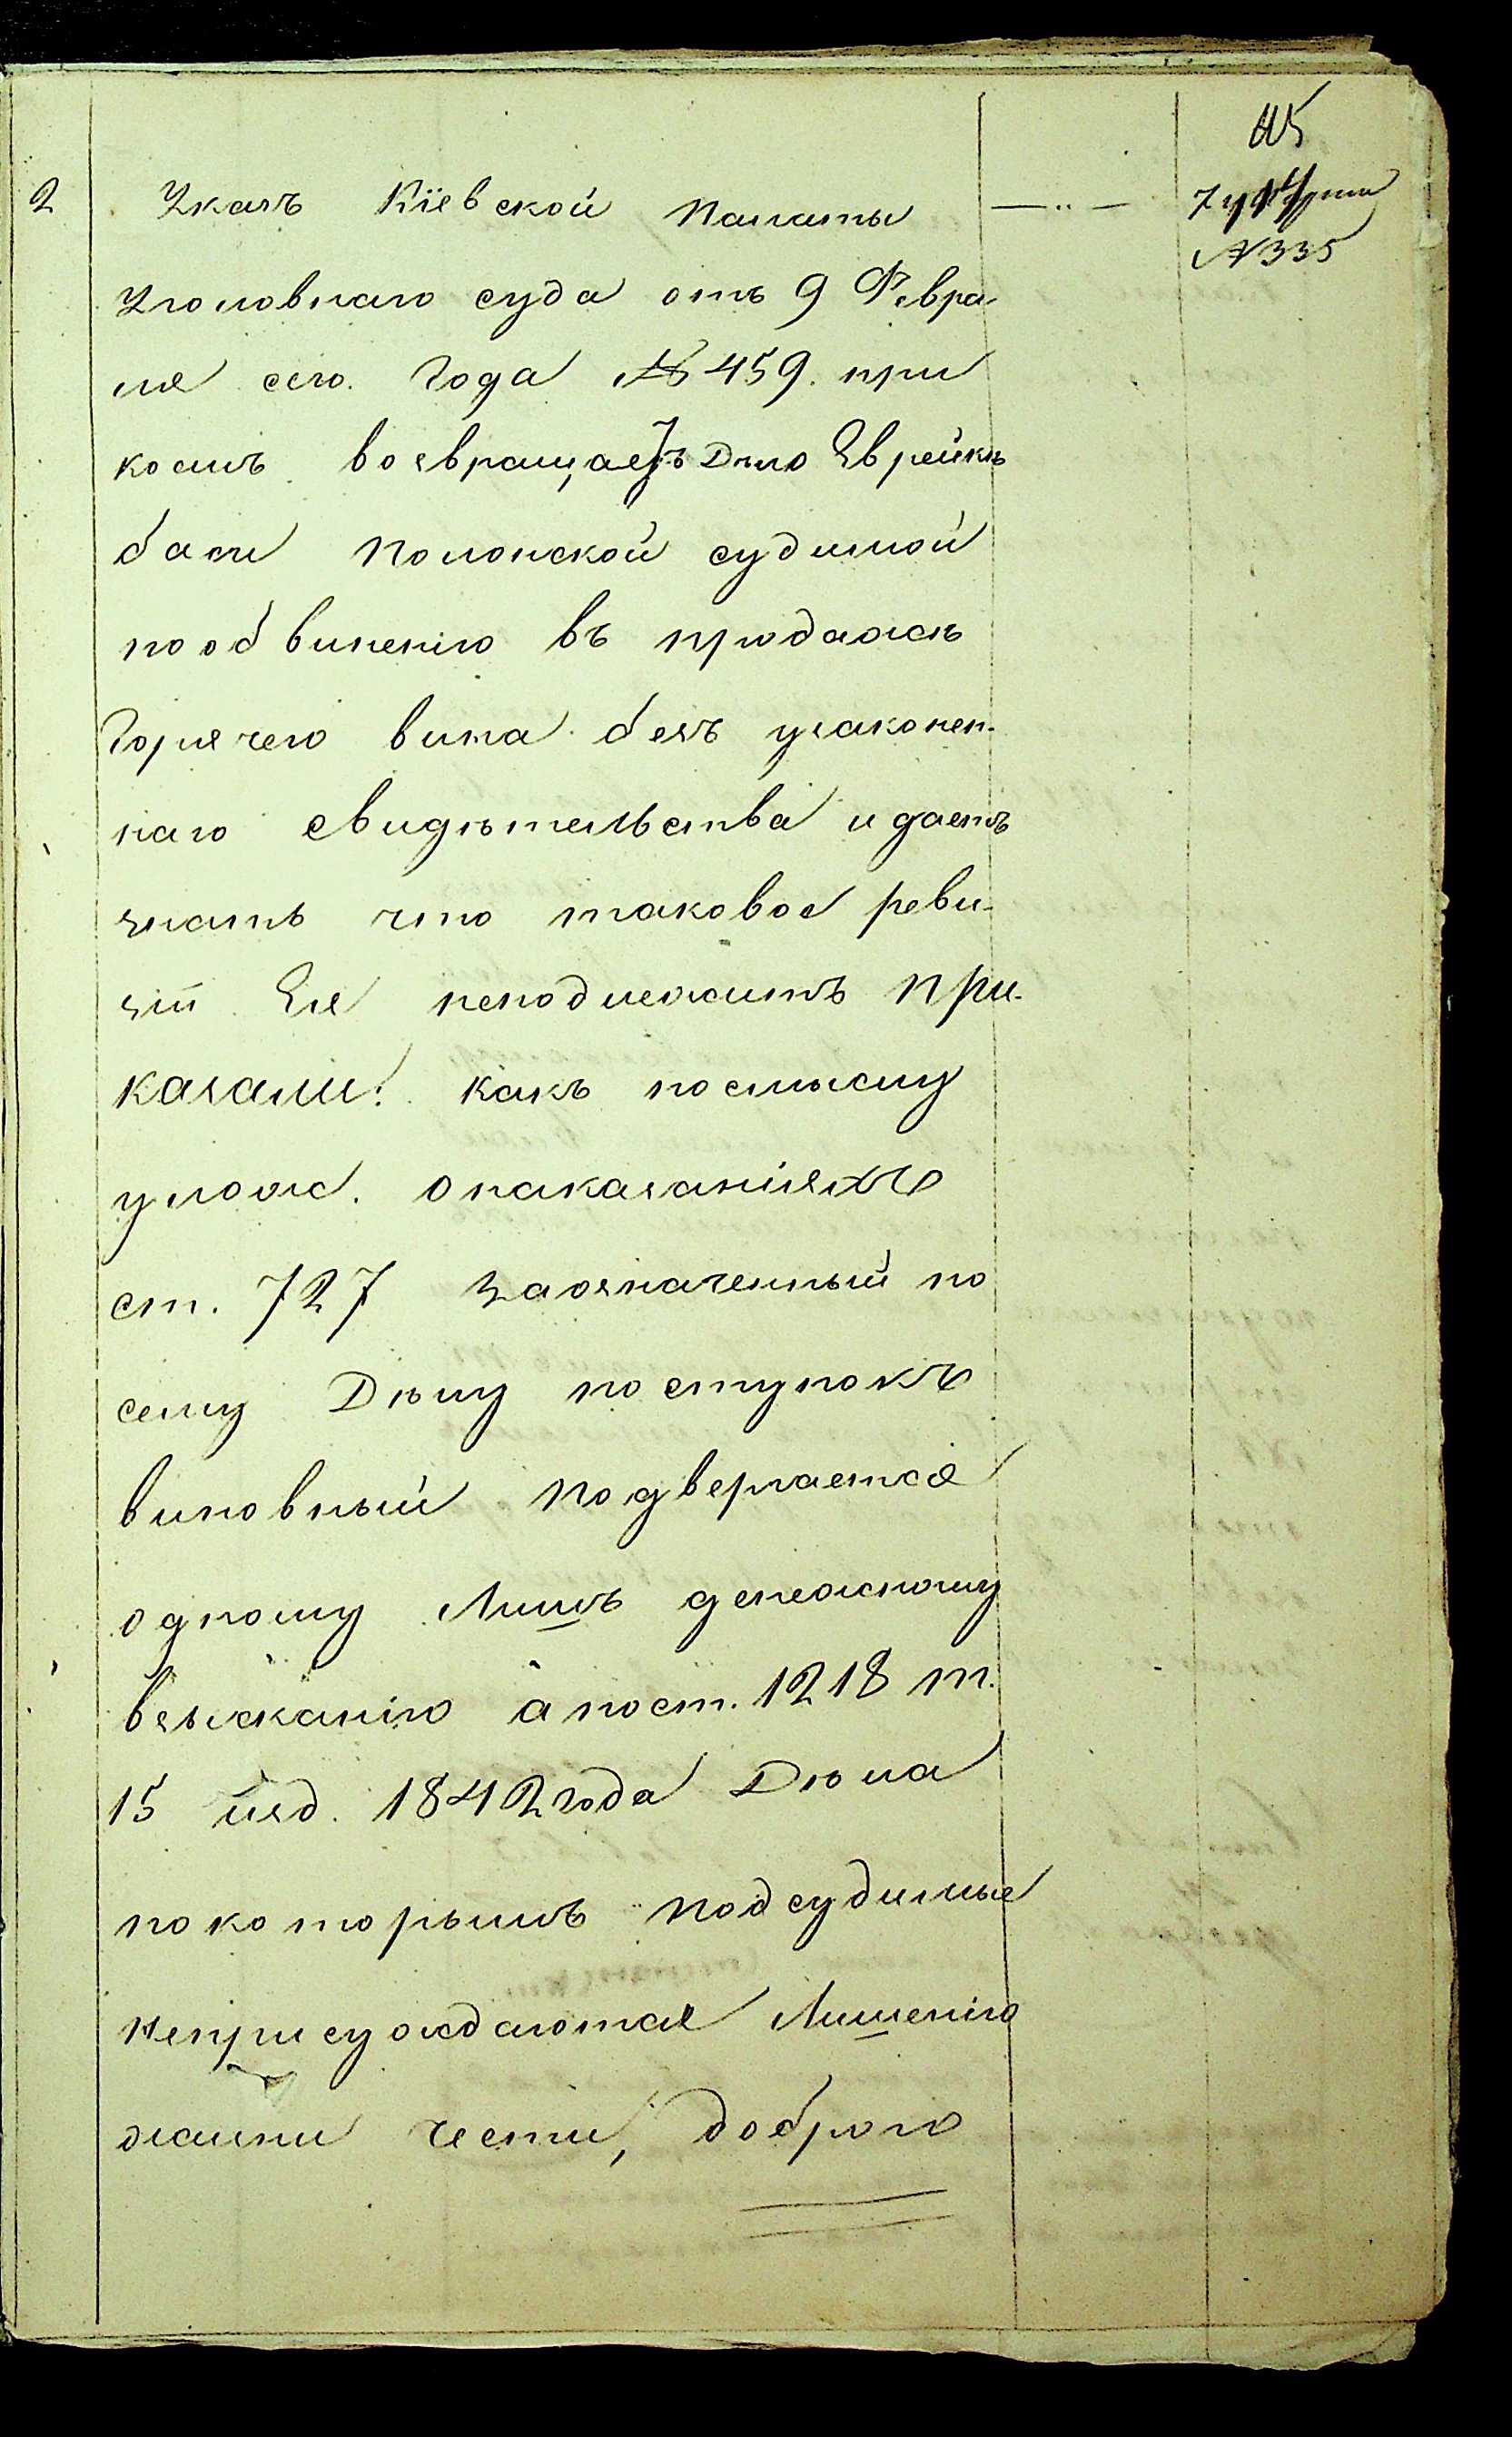 115
2
Указъ Кіевской Палаты
— „ —
N 335
Уголовнаго суда отъ 9 Февра-
ля сего. Года № 459. при
коемъ возвращаетъ Дѣло Еврейкѣ
Полонской судимой
по обвиненію въ продажѣ
Горячего вина безъ узаконен-
наго свидѣтельства и даетъ
знать что таковое реви-
зіи Ея неподлежитъ При-
казали: какъ посмыслу
улож. о наказаніяхъ
ст. 727 заозначенный по
сему Дѣлу поступокъ
виновный подвергается
одному Лишь денежному
взысканію а пост. 1218 т.
15 изд. 1842 года Дѣла
покоторымъ подсудимые
неприсуждаются Лишенію
жизни чести, доброго